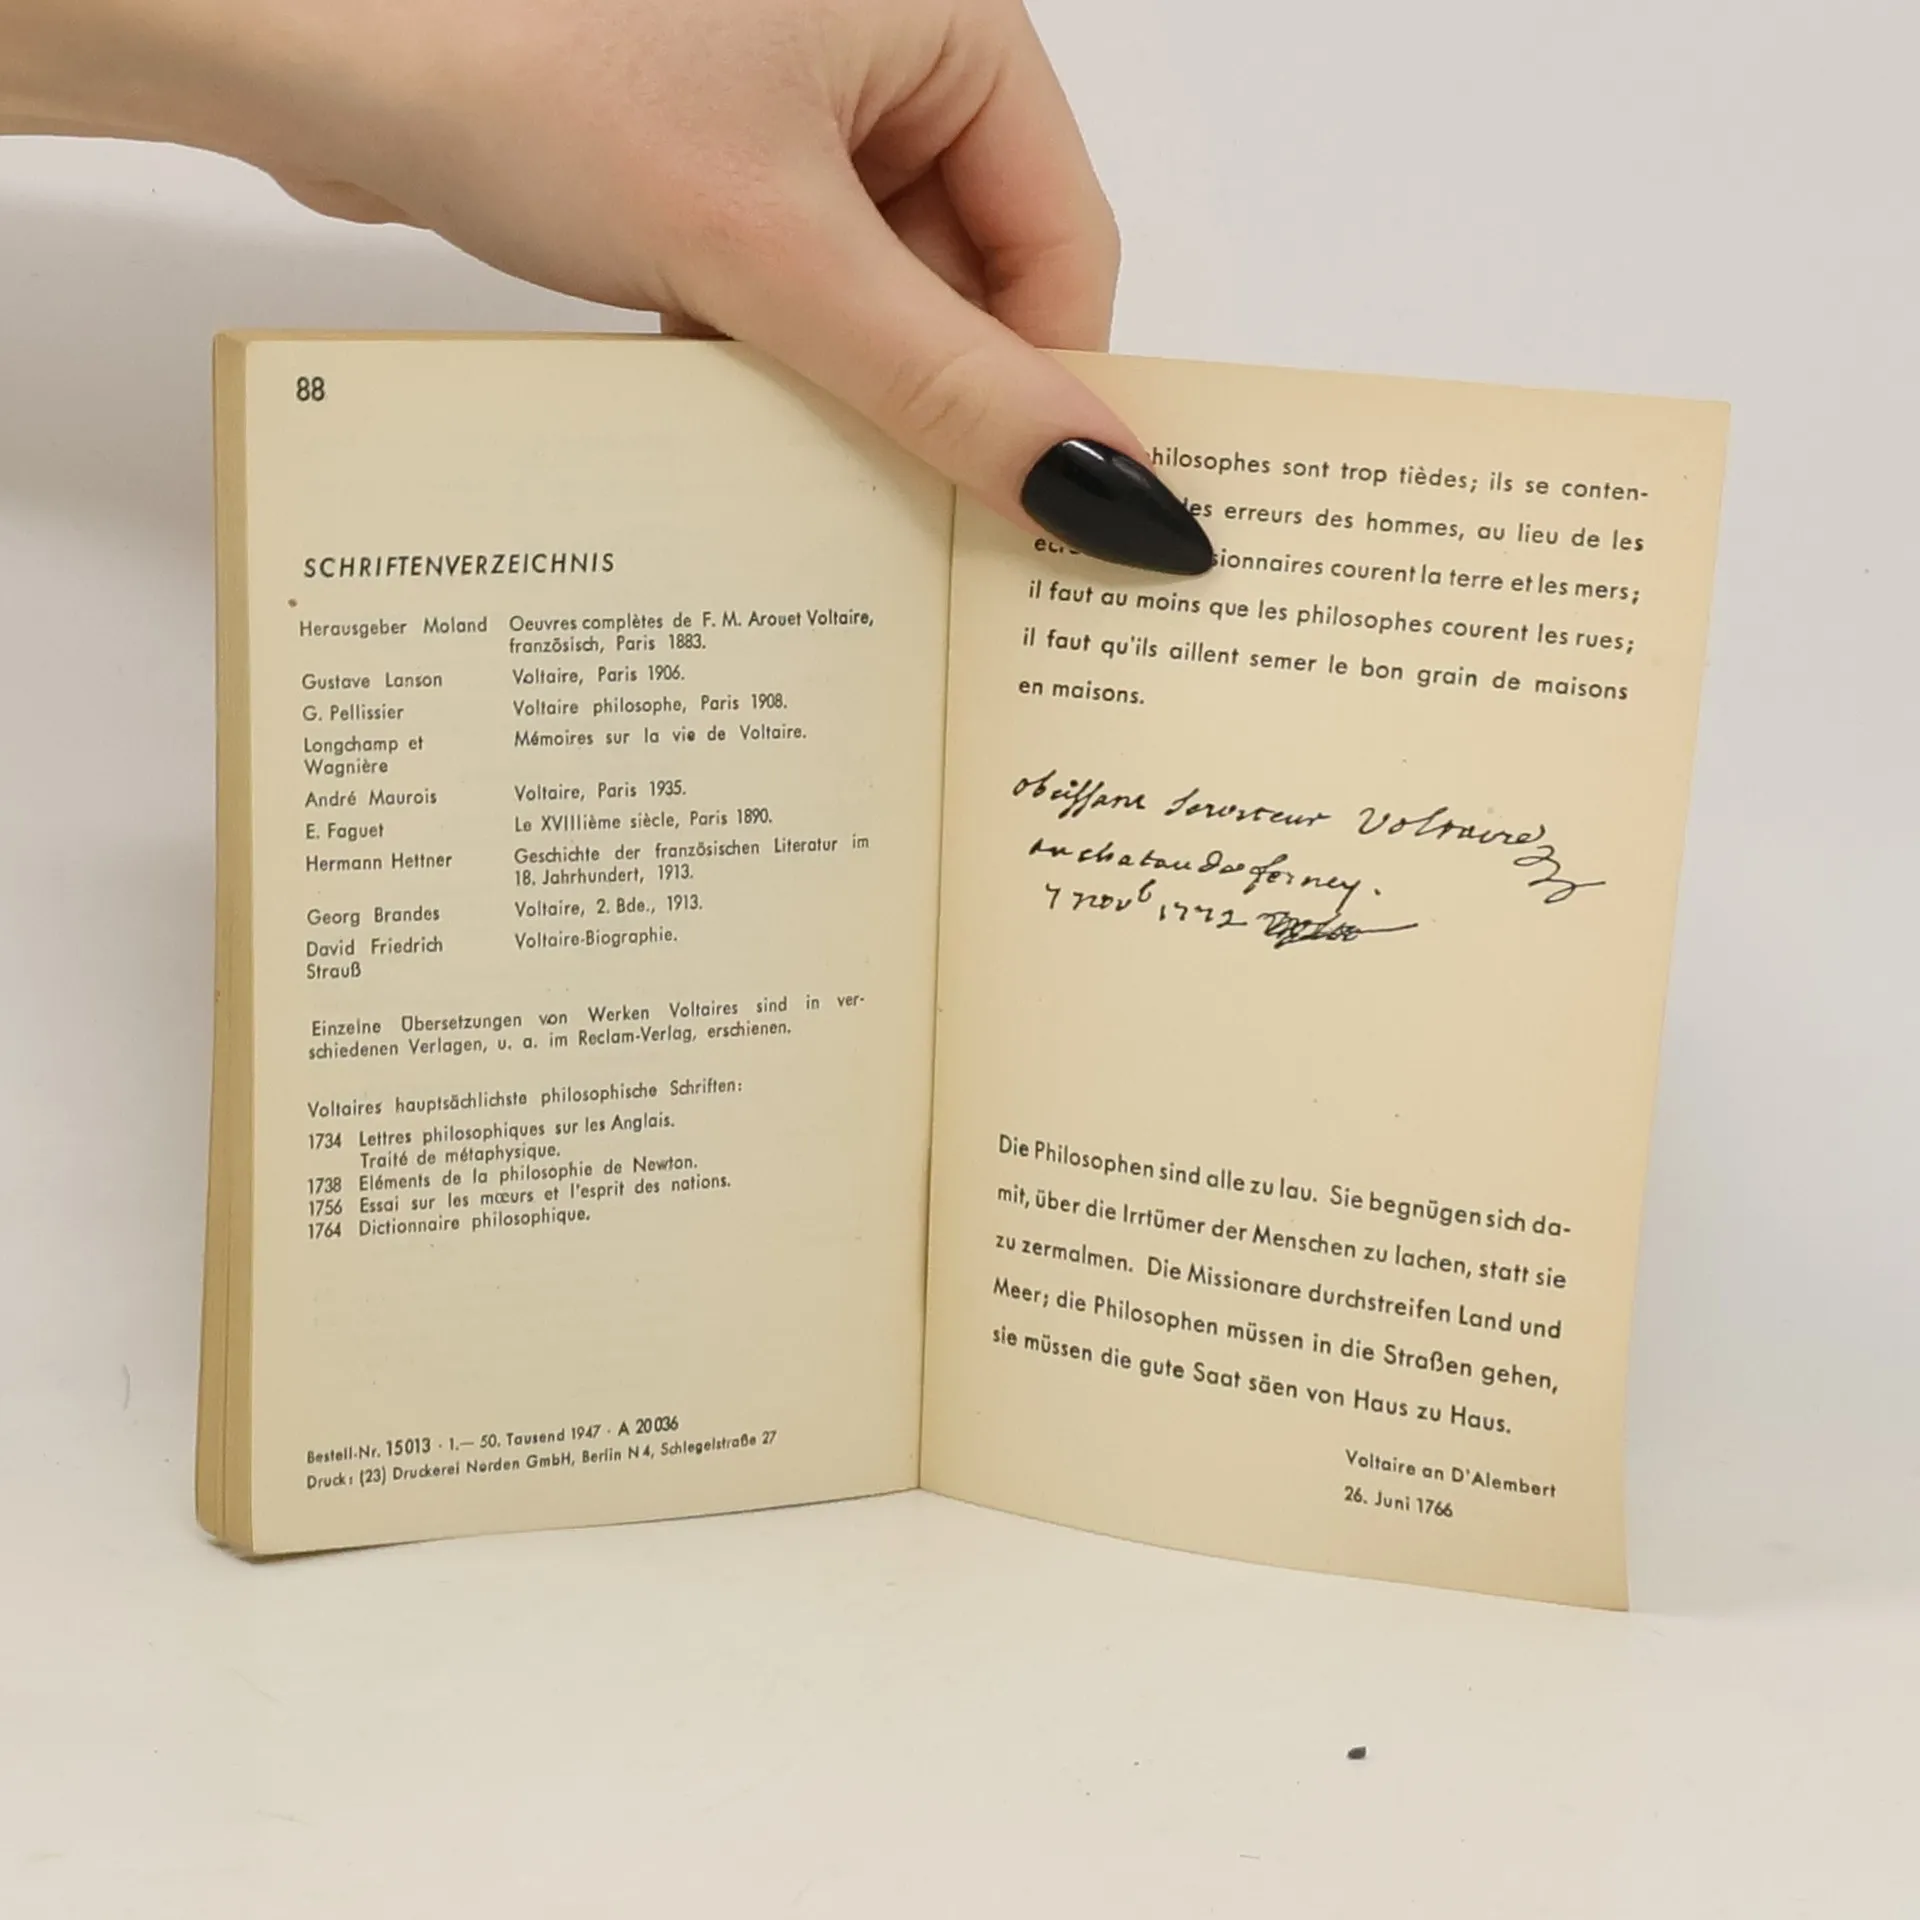 88
SCHRIFTENVERZEICHNIS
Herausgeber Moland Oeuvres complètes de F. M. Arouet Voltaire,
französisch, Paris 1883.
Gustave Lanson Voltaire, Paris 1906.
G. Pellissier Voltaire philosophe, Paris 1908.
Longchamp et Mémoires sur la vie de Voltaire.
Wagnière
André Maurois Voltaire, Paris 1935.
E. Faguet Le XVIIIième siècle, Paris 1890.
Hermann Hettner Geschichte der französischen Literatur im
18. Jahrhundert, 1913.
Georg Brandes Voltaire, 2. Bde., 1913.
David Friedrich Voltaire-Biographie.
Strauß
Einzelne Übersetzungen von Werken Voltaires sind in ver-
schiedenen Verlagen, u. a. im Reclam-Verlag, erschienen.
Voltaires hauptsächlichste philosophische Schriften:
1734 Lettres philosophiques sur les Anglais.
Traité de métaphysique.
1738 Eléments de la philosophie de Newton.
1756 Essai sur les mœurs et l'esprit des nations.
1764 Dictionnaire philosophique.
Bestell-Nr. 15013 · 1.— 50. Tausend 1947 · A 20036
Druck: (23) Druckerei Norden GmbH, Berlin N 4, Schlegelstraße 27
philosophes sont trop tièdes; ils se conten-
les erreurs des hommes, au lieu de les
courent la terre et les mers;
il faut au moins que les philosophes courent les rues;
il faut qu'ils aillent semer le bon grain de maisons
en maisons.
obéissant serviteur Voltaire
au chateau de ferney.
7 novb 1772
Die Philosophen sind alle zu lau. Sie begnügen sich da-
mit, über die Irrtümer der Menschen zu lachen, statt sie
zu zermalmen. Die Missionare durchstreifen Land und
Meer; die Philosophen müssen in die Straßen gehen,
sie müssen die gute Saat säen von Haus zu Haus.
Voltaire an D'Alembert
26. Juni 1766